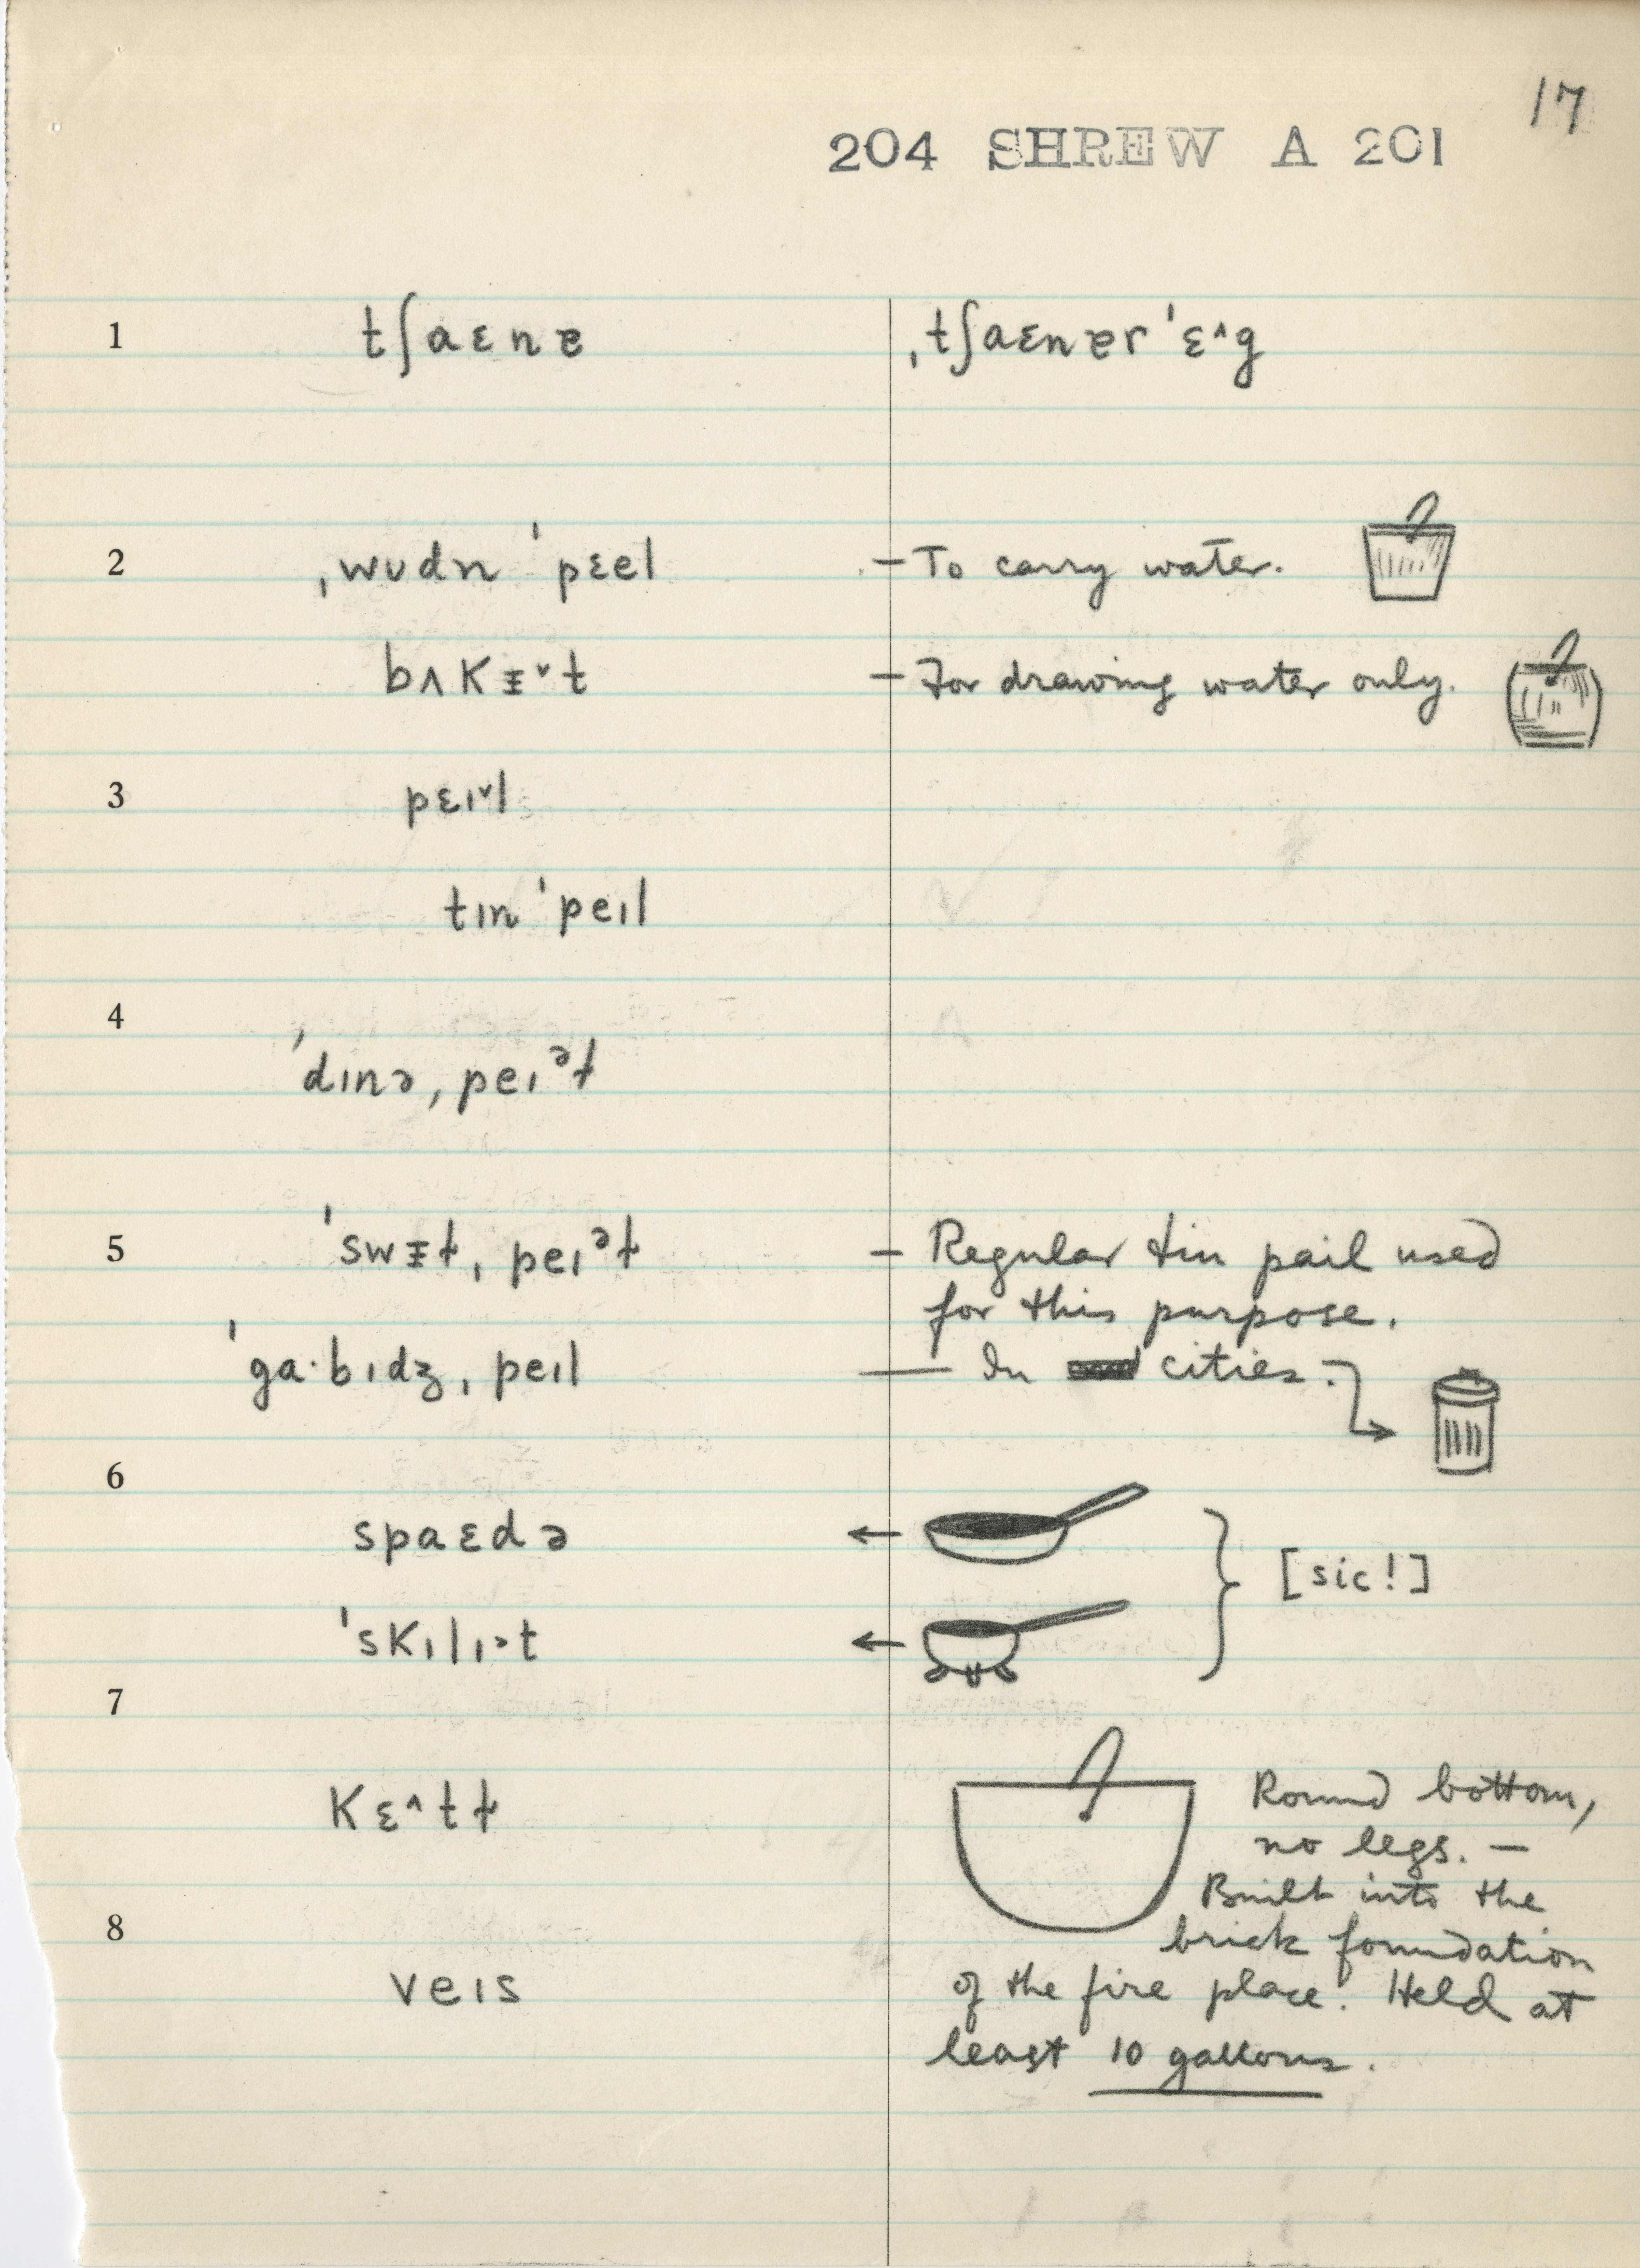 17
204 SHREW A 201
1 tʃaɛnɐ ˌtʃaɛnɐr ˈɛ^g
2 ˌwʊdn ˈpɛel – To carry water.
bʌkᵻ˅t – For drawing water only.
3 pɛɪ˅l
tɪn ˈpeɪl
4
ˈdɪnə ˌpeɪᵊɫ
5 ˈswᵻɫ ˌpeɪᵊɫ – Regular tin pail used
for this purpose.
ˈga·bɪdʒ ˌpeɪl — In cities.
6
spaɛdə ← [sic!]
ˈskɪlɪ˃t ←
7
kɛ^tɫ Round bottom,
no legs. –
Built into the
8 brick foundation
veɪs of the fire place. Held at
least 10 gallons.